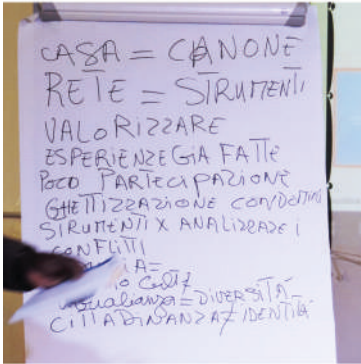 CASA = CANONE
RETE = STRUMENTI
VALORIZZARE
ESPERIENZE GIA FATTE
POCO PARTECIPAZIONE
GHETTIZZAZIONE CONDOMINI
STRUMENTI X ANALIZZARE i
CONFLITTI
A =
uguaglianza = DIVERSITÀ
CITTADINANZA ≠ IDENTITÀ